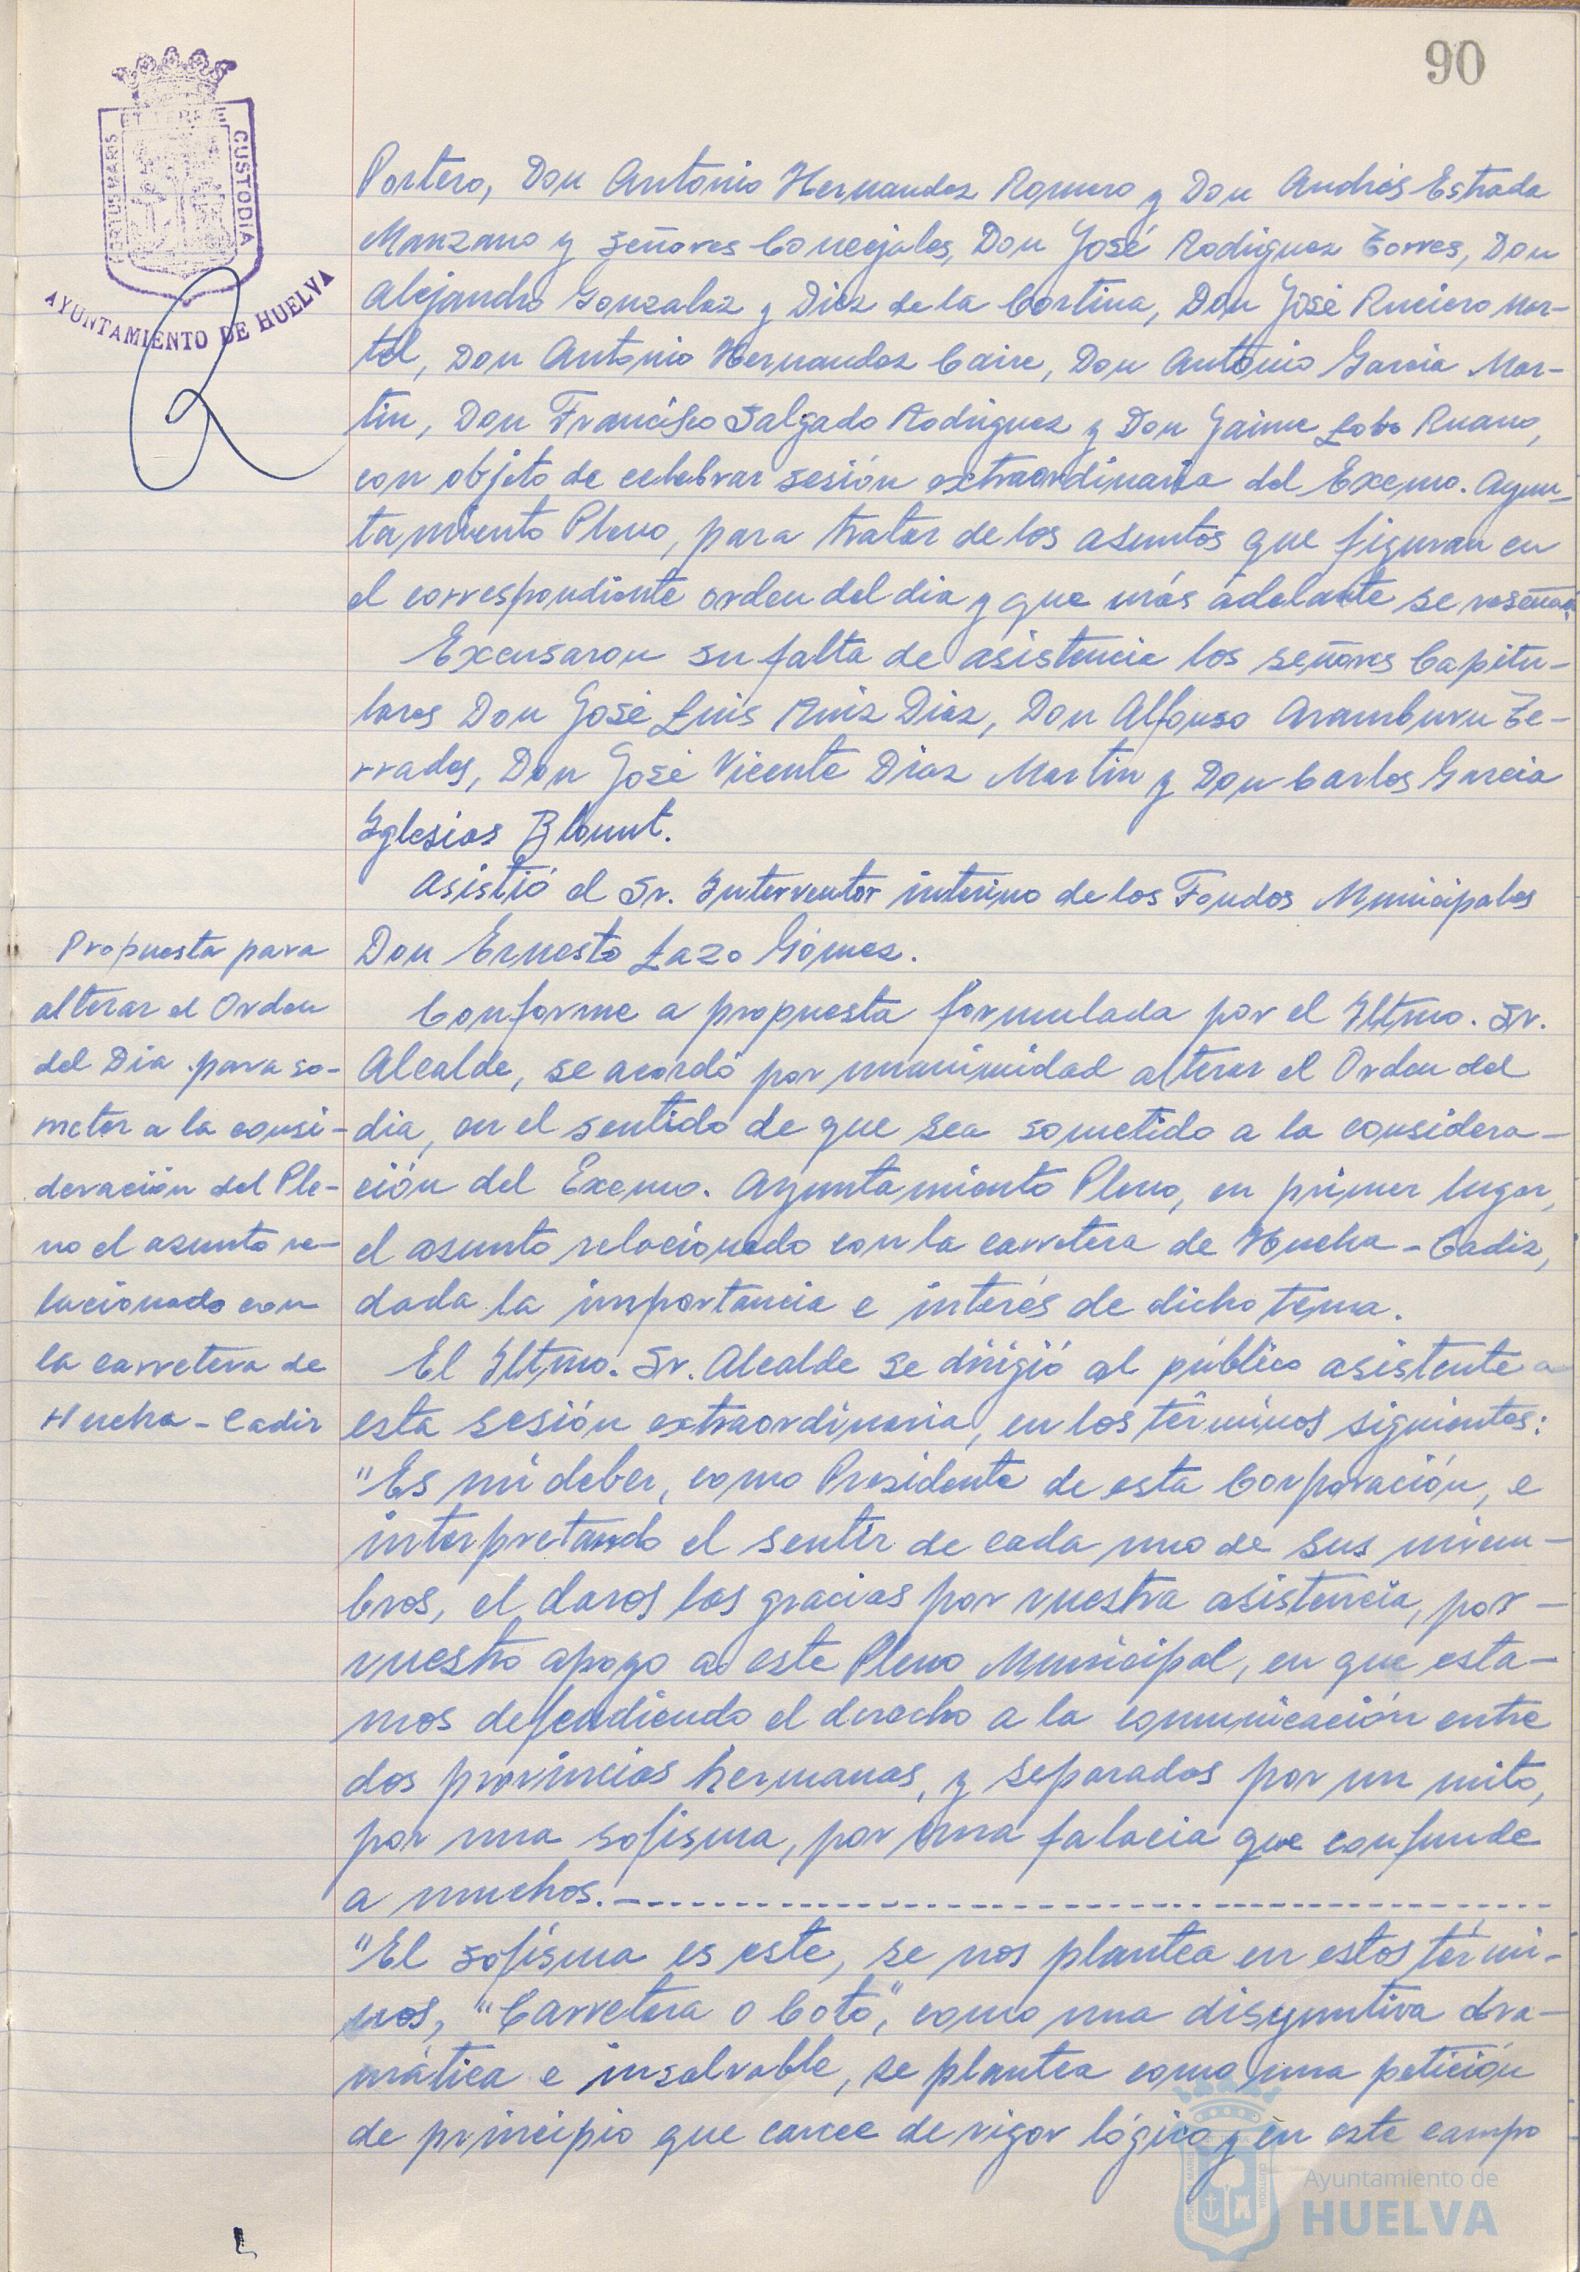 90
PORTUS MARIS ET TERRE CUSTODIA
AYUNTAMIENTO DE HUELVA
Portero, Don Antonio Hernandez Romero y Don Andrés Estrada
Manzano y señores Concejales, Don José Rodriguez Torres, Don
Alejandro Gonzalez y Diez de la Cortina, Don José Ruciero Mar-
tel, Don Antonio Hernandez Caire, Don Antonio Garcia Mar-
tin, Don Francisco Salgado Rodriguez y Don Jaime Lobo Ruano,
con objeto de celebrar sesión extraordinaria del Excmo. Ayun-
tamiento Pleno, para tratar de los asuntos que figuran en
el correspondiente orden del dia y que más adelante se reseñan.
Excusaron su falta de asistencia los señores Capitu-
lares Don José Luis Ruiz Diaz, Don Alfonso Aramburu Te-
rrades, Don José Vicente Diaz Martin y Don Carlos Garcia
Iglesias Blount.
Asistió el Sr. Interventor interino de los Fondos Municipales
Don Ernesto Lazo Gómez.
Propuesta para
alterar el Orden
del Dia para so-
meter a la consi-
deración del Ple-
no el asunto re-
lacionado con
la carretera de
Huelva - Cadiz
Conforme a propuesta formulada por el Iltmo. Sr.
Alcalde, se acordó por unanimidad alterar el Orden del
dia, en el sentido de que sea sometido a la considera-
ción del Excmo. Ayuntamiento Pleno, en primer lugar,
el asunto relacionado con la carretera de Huelva - Cadiz,
dada la importancia e interés de dicho tema.
El Iltmo. Sr. Alcalde se dirigió al público asistente a
esta sesión extraordinaria, en los términos siguientes:
"Es mi deber, como Presidente de esta Corporación, e
interpretando el sentir de cada uno de sus miem-
bros, el daros las gracias por vuestra asistencia, por -
vuestro apoyo a este Pleno Municipal, en que esta-
mos defendiendo el derecho a la comunicación entre
dos provincias hermanas, y separadas por un mito,
por una sofisma, por una falacia que confunde
a muchos.
"El sofisma es este, se nos plantea en estos térmi-
nos, "Carretera o Coto", como una disyuntiva dra-
mática e insalvable, se plantea como una petición
de principio que carece de rigor lógico y en este campo
Ayuntamiento de
HUELVA